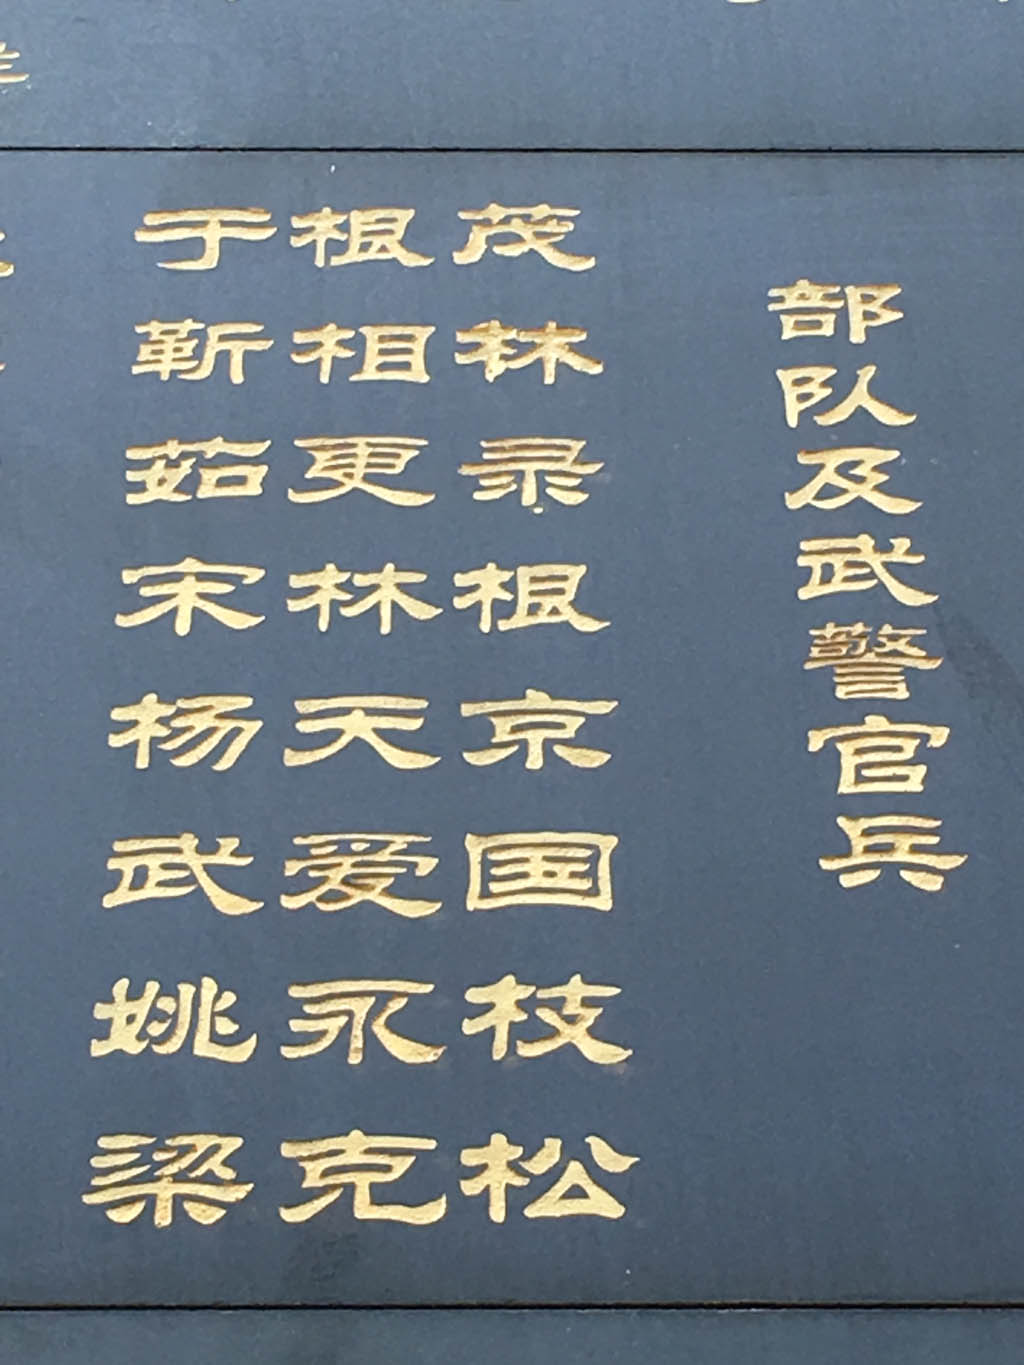 于根茂
靳相林
茹更录
宋林根
杨天京
武爱国
姚永枝
梁克松
部队及武警官兵